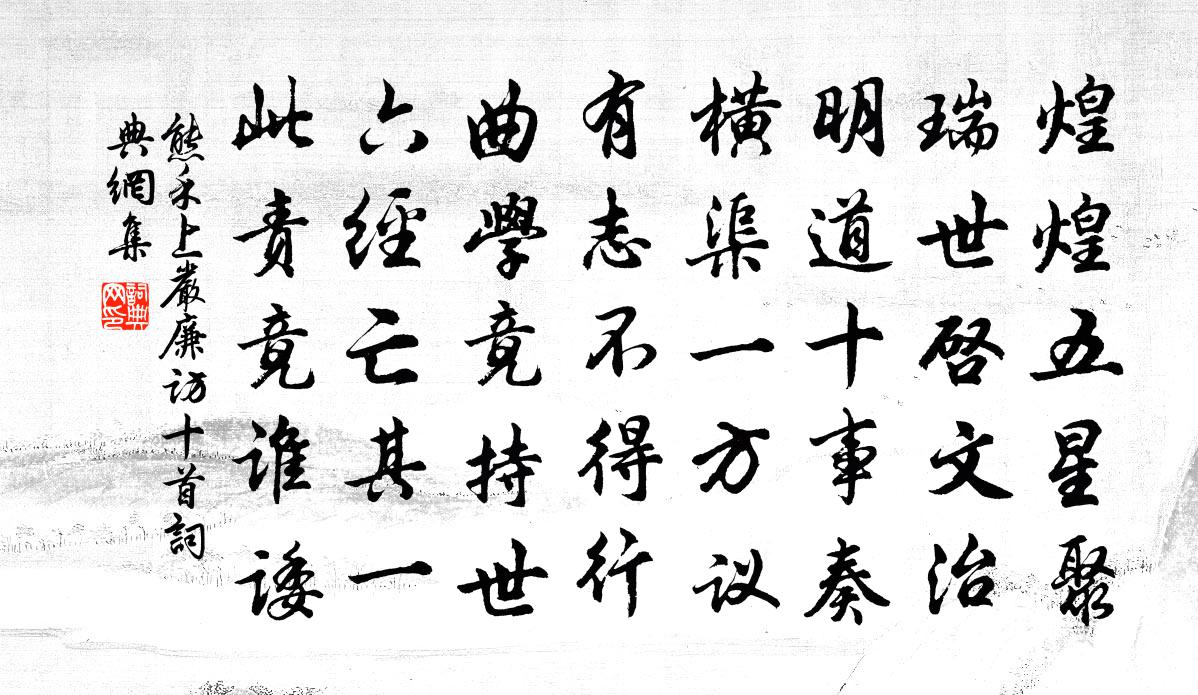 煌煌五星聚
瑞世啓文治
明道十事奏
橫渠一方议
有志不得行
曲學竟持世
六經亡其一
此责竟谁诿
熊禾上嚴廉访十首詞
典網集
詞典
网印